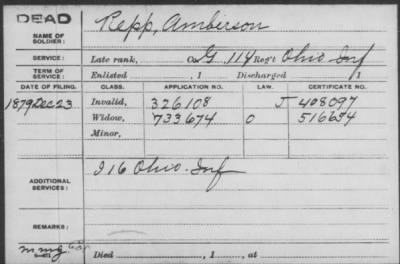 DEAD
NAME OF SOLDIER: Repp, Amberson
SERVICE: Late rank, Co. G, 114 Reg't Ohio Inf
TERM OF SERVICE: Enlisted , 1 Discharged , 1
DATE OF FILING. CLASS. APPLICATION NO. LAW. CERTIFICATE NO.
1879 Dec 23 Invalid, 326108 J 408097
Widow, 733674 O
Minor,
ADDITIONAL SERVICES: I 16 Ohio Inf
REMARKS:
Died , 1 , at